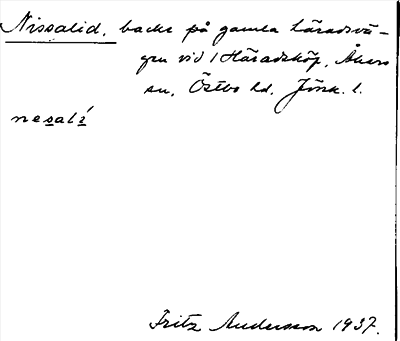 Nissalid, backe på gamla häradsvä-
gen vid Häradsköp, Åkers
sn, Östbo hd. Jönk. l.
nesalí
Fritz Andersson 1937.